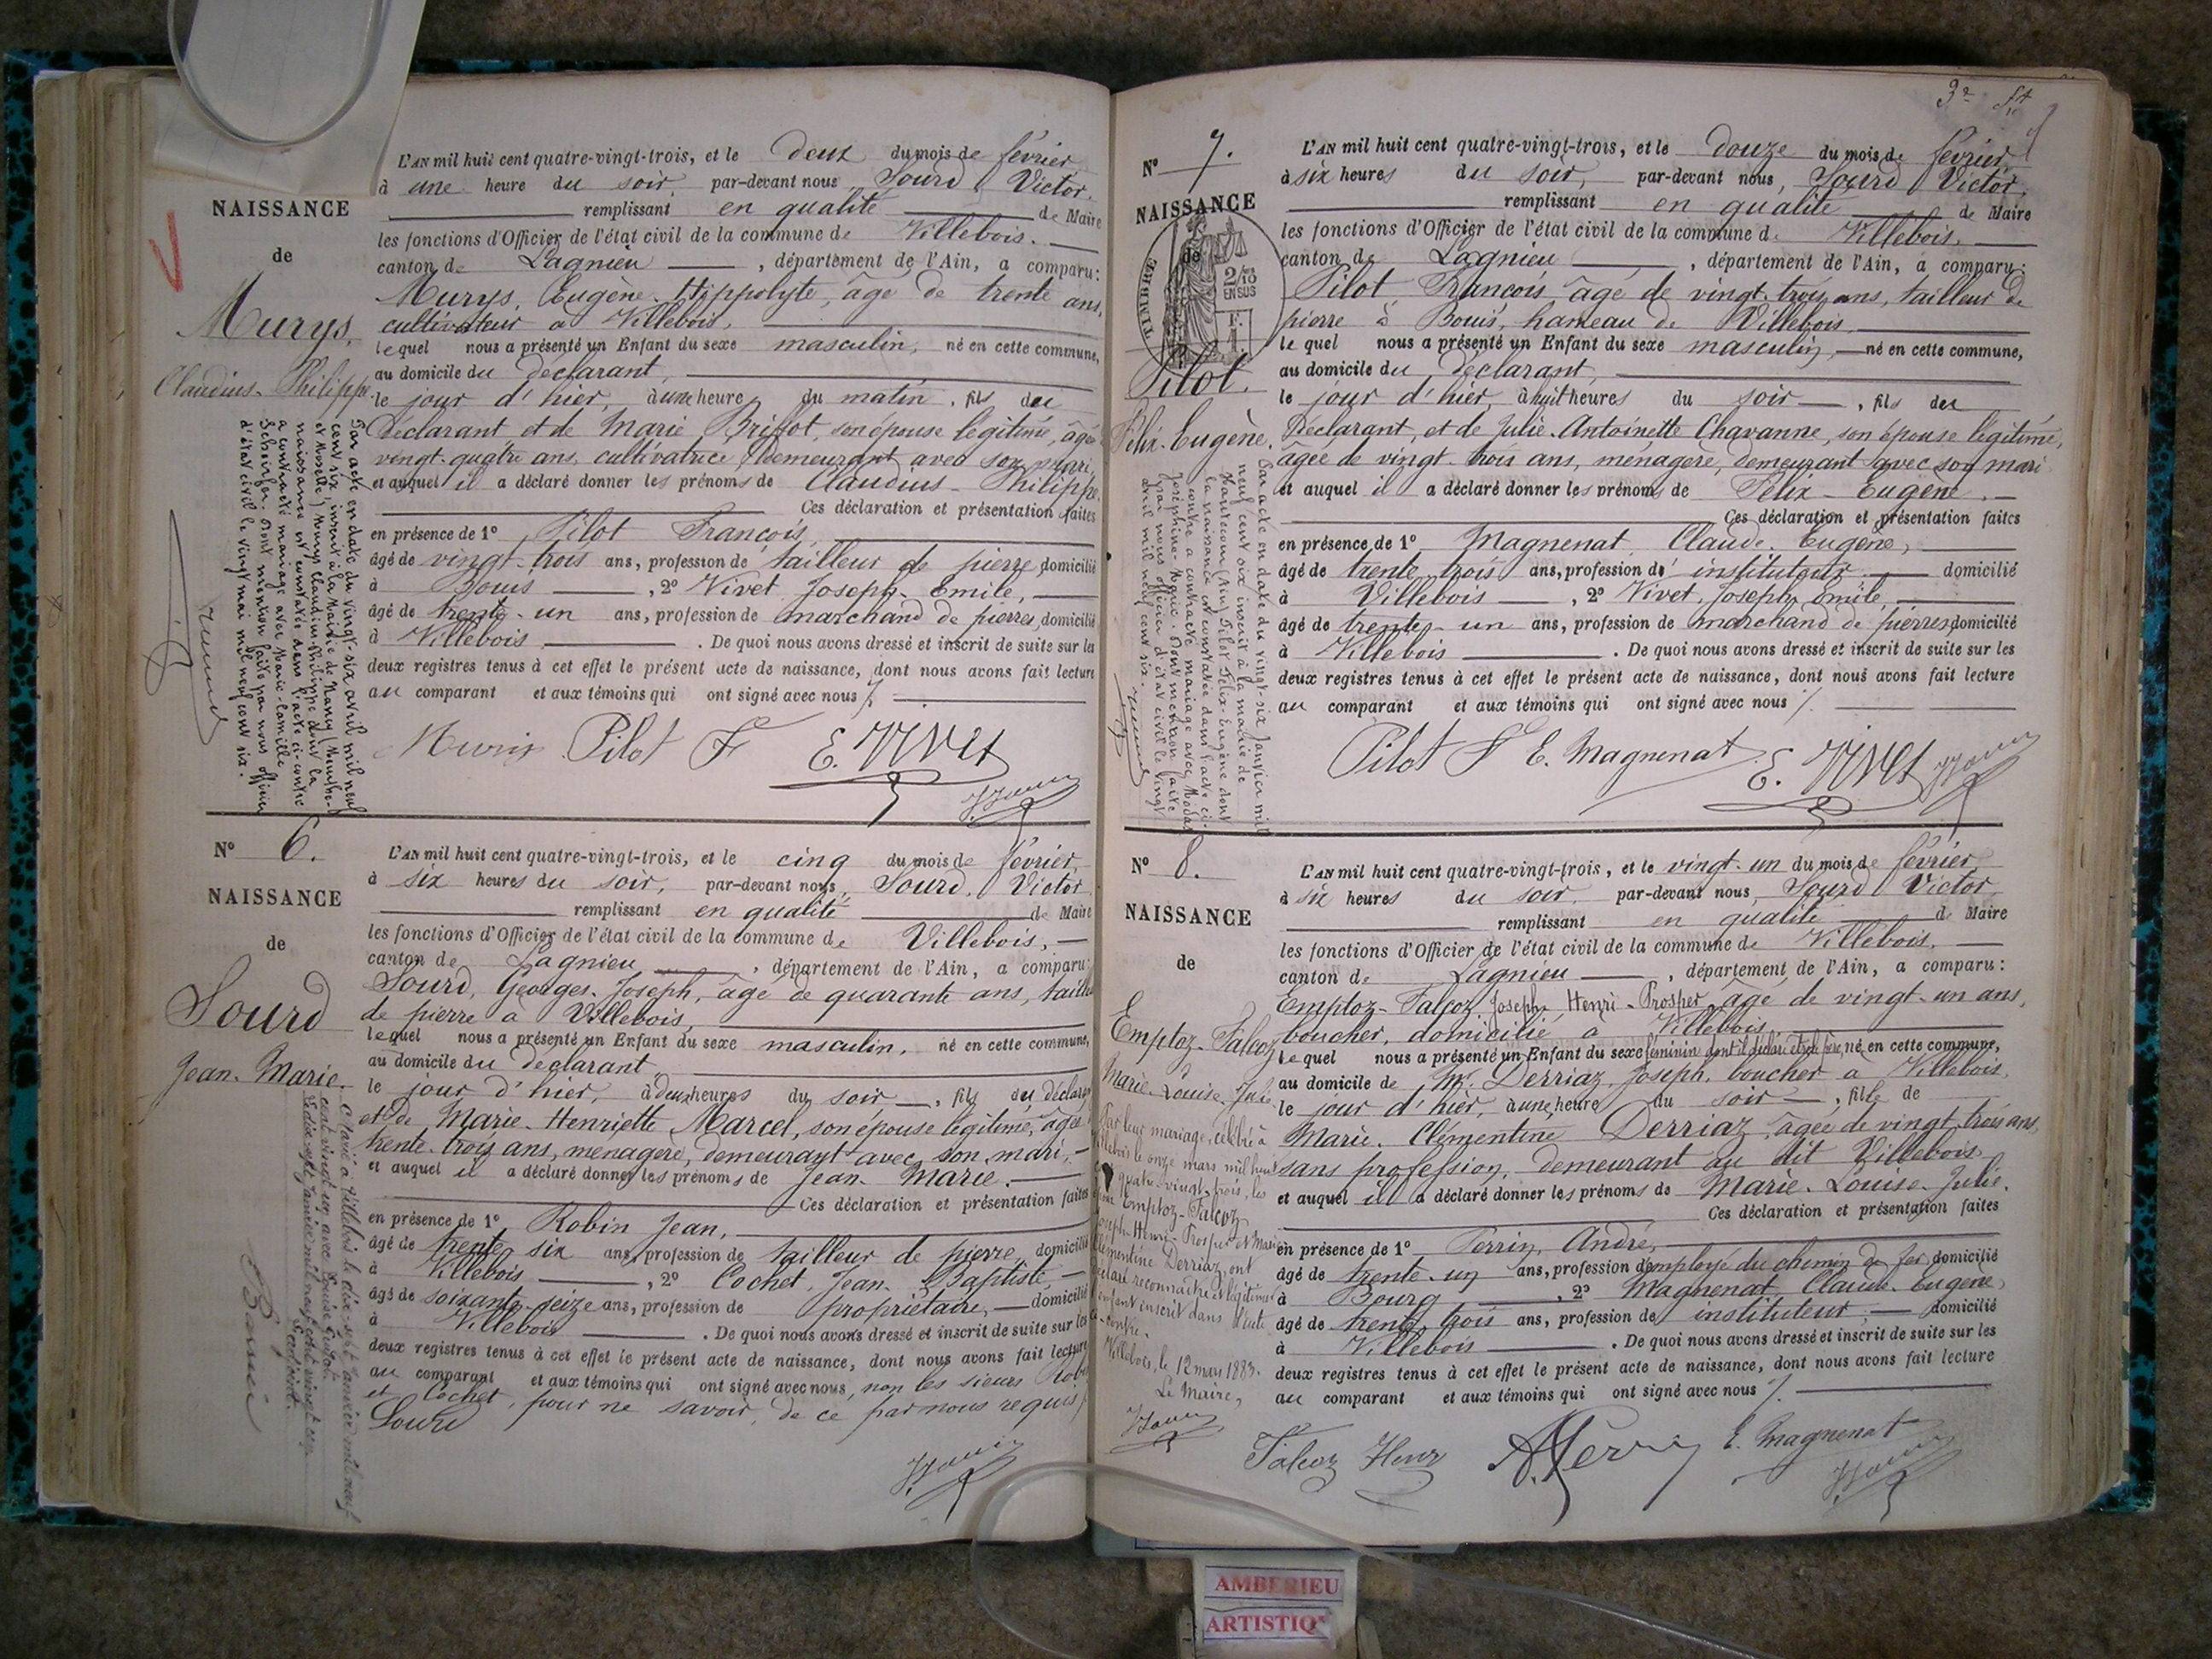 L'AN mil huit cent quatre-vingt-trois, et le deux du mois de février
à une heure du soir, par-devant nous, Sourd Victor,
remplissant en qualité de Maire
les fonctions d'Officier de l'état civil de la commune de Villebois.
canton de Lagnieu, département de l'Ain, a comparu:
Murys, Eugène Hippolyte, âgé de trente ans,
cultivateur à Villebois,
lequel nous a présenté un Enfant du sexe masculin, né en cette commune,
au domicile du déclarant,
le jour d'hier, à une heure du matin, fils du
déclarant et de Marie Briffot, son épouse légitime, âgé
vingt-quatre ans, cultivatrice, demeurant avec son mari,
et auquel il a déclaré donner les prénoms de Claudius-Philippe.
Ces déclaration et présentation faites
en présence de 1° Pilot François,
âgé de vingt-trois ans, profession de tailleur de pierre, domicilié
à Bouis, 2° Vivet, Joseph-Emile,
âgé de trente-un ans, profession de marchand de pierres, domicilié
à Villebois. De quoi nous avons dressé et inscrit de suite sur les
deux registres tenus à cet effet le présent acte de naissance, dont nous avons fait lecture
au comparant et aux témoins qui ont signé avec nous
Muris Pilot F E. Vivet
NAISSANCE
de
Murys,
Claudius-Philippe
Par acte en date du vingt-six avril mil neuf
cent six, inscrit à la Mairie de Nancy (Meurthe-
et-Moselle,) Murys Claudius-Philippe dont la
naissance est constatée dans l'acte ci-contre
a contracté mariage avec Marie-Camille
dont mention faite par nous officier
d'état civil le vingt mai mil neuf cent six.
N° 6.
NAISSANCE
de
Sourd
Jean-Marie.
L'AN mil huit cent quatre-vingt-trois, et le cinq du mois de février
à six heures du soir, par-devant nous, Sourd, Victor
remplissant en qualité de Maire
les fonctions d'Officier de l'état civil de la commune de Villebois,
canton de Lagnieu, département de l'Ain, a comparu:
Sourd, Georges-Joseph, âgé de quarante ans, taill
de pierre à Villebois,
lequel nous a présenté un Enfant du sexe masculin, né en cette commune,
au domicile du déclarant
le jour d'hier, à deux heures du soir, fils du déclara
et de Marie-Henriette Marcel, son épouse légitime, âgée
trente-trois ans, ménagère, demeurant avec son mari,
et auquel il a déclaré donner les prénoms de Jean-Marie.
Ces déclaration et présentation faites
en présence de 1° Robin Jean,
âgé de trente-six ans, profession de tailleur de pierre, domicilié
à Villebois, 2° Cochet, Jean-Baptiste,
âgé de soixante-seize ans, profession de propriétaire, domicilié
à Villebois. De quoi nous avons dressé et inscrit de suite sur les
deux registres tenus à cet effet le présent acte de naissance, dont nous avons fait lecture
au comparant et aux témoins qui ont signé avec nous, non les sieurs Robi
et Cochet, pour ne savoir, de ce par nous requis
Sourd
à Villebois le dix-sept janvier mil neuf
cent vingt un avec Louise
Le dix-sept janvier mil neuf cent vingt un
N° 7.
NAISSANCE
de
TIMBRE
2/10
EN SUS
F.
1
Pilot.
Félix-Eugène.
L'AN mil huit cent quatre-vingt-trois, et le douze du mois de février
à six heures du soir, par-devant nous, Sourd Victor,
remplissant en qualité de Maire
les fonctions d'Officier de l'état civil de la commune de Villebois,
canton de Lagnieu, département de l'Ain, a comparu:
Pilot François âgé de vingt-trois ans, tailleur de
pierre à Bouis, hameau de Villebois,
lequel nous a présenté un Enfant du sexe masculin, né en cette commune,
au domicile du déclarant,
le jour d'hier, à huit heures du soir, fils du
Déclarant, et de Julie-Antoinette Chavanne, son épouse légitime,
âgée de vingt-trois ans, ménagère, demeurant avec son mari
et auquel il a déclaré donner les prénoms de Félix-Eugène.
Ces déclaration et présentation faites
en présence de 1° Magnenat Claude-Eugène,
âgé de trente trois ans, profession d' instituteur domicilié
à Villebois, 2° Vivet, Joseph Emile,
âgé de trente-un ans, profession de marchand de pierres, domicilié
à Villebois. De quoi nous avons dressé et inscrit de suite sur les
deux registres tenus à cet effet le présent acte de naissance, dont nous avons fait lecture
au comparant et aux témoins qui ont signé avec nous
Pilot F E. Magnenat E. Vivet
Par acte en date du vingt-six janvier mil
neuf cent six inscrit à la mairie de
Hauteville (Ain) Pilot Félix-Eugène dont
la naissance est constatée dans l'acte ci-
contre a contracté mariage avec
Joséphine dont mention faite
par nous officier d'état civil le vingt
avril mil neuf cent six.
N° 8.
NAISSANCE
de
Emptoz-Falcoz
Marie-Louise-Julie
L'AN mil huit cent quatre-vingt-trois, et le vingt-un du mois de février
à six heures du soir par-devant nous, Sourd Victor,
remplissant en qualité de Maire
les fonctions d'Officier de l'état civil de la commune de Villebois,
canton de Lagnieu, département de l'Ain, a comparu:
Emptoz-Falcoz Joseph-Henri-Prosper âgé de vingt-un ans,
boucher, domicilié à Villebois
lequel nous a présenté un Enfant du sexe féminin dont il déclare être le père, né en cette commune,
au domicile de Mr Derriaz, Joseph, boucher à Villebois,
le jour d'hier, à une heure du soir, fille de
Marie-Clémentine Derriaz, âgée de vingt-trois ans,
sans profession, demeurant au dit Villebois.
et auquel il a déclaré donner les prénoms de Marie-Louise-Julie.
Ces déclaration et présentation faites
en présence de 1° Perrin, André,
âgé de trente-un ans, profession d'employé du chemin de fer, domicilié
à Bourg, 2° Magnenat, Claude-Eugène,
âgé de trente trois ans, profession de instituteur, domicilié
à Villebois. De quoi nous avons dressé et inscrit de suite sur les
deux registres tenus à cet effet le présent acte de naissance, dont nous avons fait lecture
au comparant et aux témoins qui ont signé avec nous
Falcoz Henri A. Perrin E. Magnenat
Par leur mariage, célébré à
Villebois le onze mars mil huit
quatre-vingt-trois, les
Emptoz-Falcoz
Joseph-Henri-Prosper et Marie
Clémentine Derriaz, ont
déclaré reconnaître et légitimer
l'enfant inscrit dans l'acte
ci-contre.
Villebois, le 12 mars 1883.
Le Maire,
AMBERIEU
ARTISTIQ